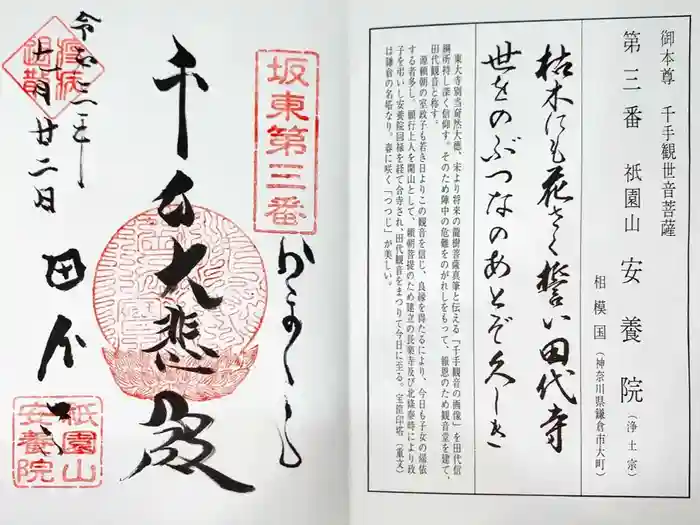 御本尊 千手観世音菩薩
第三番 祇園山 安養院(浄土宗)
相模国(神奈川県鎌倉市大町)
枯木にも花さく誓い田代寺
世をのぶつなのあとぞ久しき
東大寺別当奝然大徳、宋より将来の龍樹菩薩真筆と伝える「千手観音の画像」を田代信
綱所持し深く信仰す。そのため陣中の危難をのがれしをもって、報恩のため観音堂を建て、
田代観音と称す。
源頼朝の室政子も若き日よりこの観音を信じ、良縁を得たるにより、今日も子女の帰依
する者多し。願行上人を開山として、頼朝菩提のため建立の長楽寺及び北条泰時により政
子を弔いし安養院回禄を経て合寺され、田代観音をまつりて今日に至る。宝篋印塔(重文)
は鎌倉の名塔なり。春に咲く「つつじ」が美しい。
坂東第三番
千手大悲殿
田代
祇園山
安養院
令和三年
十一月廿二日